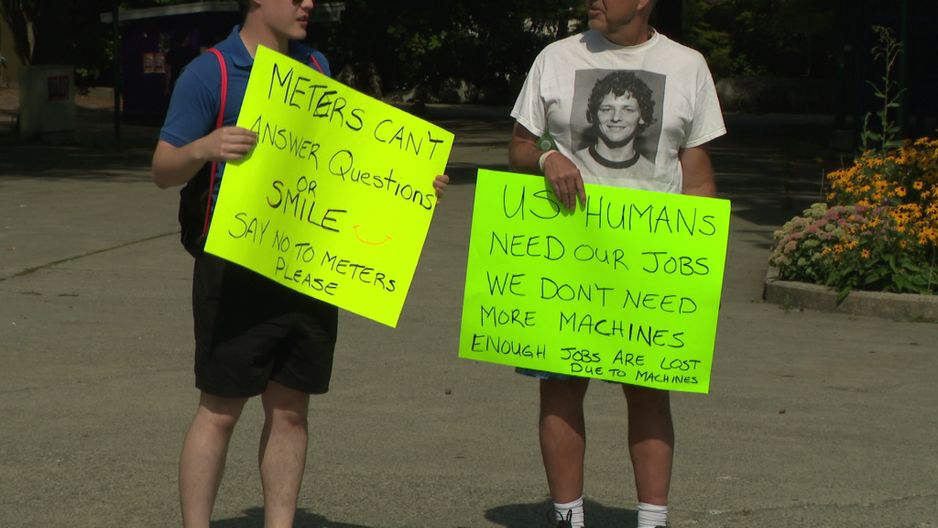 METERS CAN'T
ANSWER QUESTIONS
OR
SMILE
SAY NO TO METERS
PLEASE
US HUMANS
NEED OUR JOBS
WE DON'T NEED
MORE MACHINES
ENOUGH JOBS ARE LOST
DUE TO MACHINES